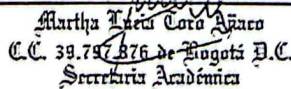 Martha Lucia Toro
C.C. 39.797.876 de Bogotá D.C.
Secretaria Académica